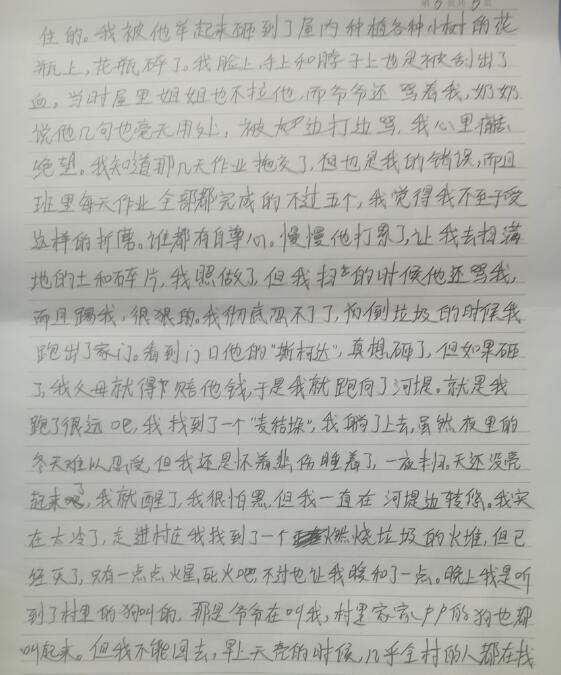 第5页共8页
住的。我被他举起来砸到了屋内种植各种小树的花
瓶上，花瓶碎了。我脸上，手上和脖子上也是被刮出了
血。当时屋里姐姐也不拉他，而爷爷还骂着我，奶奶
说他几句也毫无用处，被边打边骂，我心里痛苦、
绝望。我知道那几天作业拖交了，但也是我的错误，而且
班里每天作业全部都完成的不过五个，我觉得我不至于受
这样的折磨。谁都有自尊心。慢慢他打累了，让我去扫满
地的土和碎片，我照做了，但我扫土的时候他还骂我，
而且踢我，很狠的。我彻底忍不了了，向倒垃圾的时候我
跑出了家门。看到门口他的“斯柯达”，真想砸了，但如果砸
了，我父母就得赔他钱，于是我就跑向了河堤。就是我
跑了很远吧，我找到了一个“麦秸垛”，我躺了上去，虽然夜里的
冬天难以忍受，但我还是怀着悲伤睡着了，一夜，天还没亮
起来，我就醒了，我很怕黑，但我一直在河堤边转悠。我实
在太冷了，走进村庄我找到了一个燃烧垃圾的火堆，但已
经灭了，只有一点点火星，死火吧，不过也让我暖和了一点。晚上我是听
到了村里的狗叫的，那是爷爷在叫我，村里家家户户的狗也都
叫起来。但我不能回去，早上天亮的时候，几乎全村的人都在找